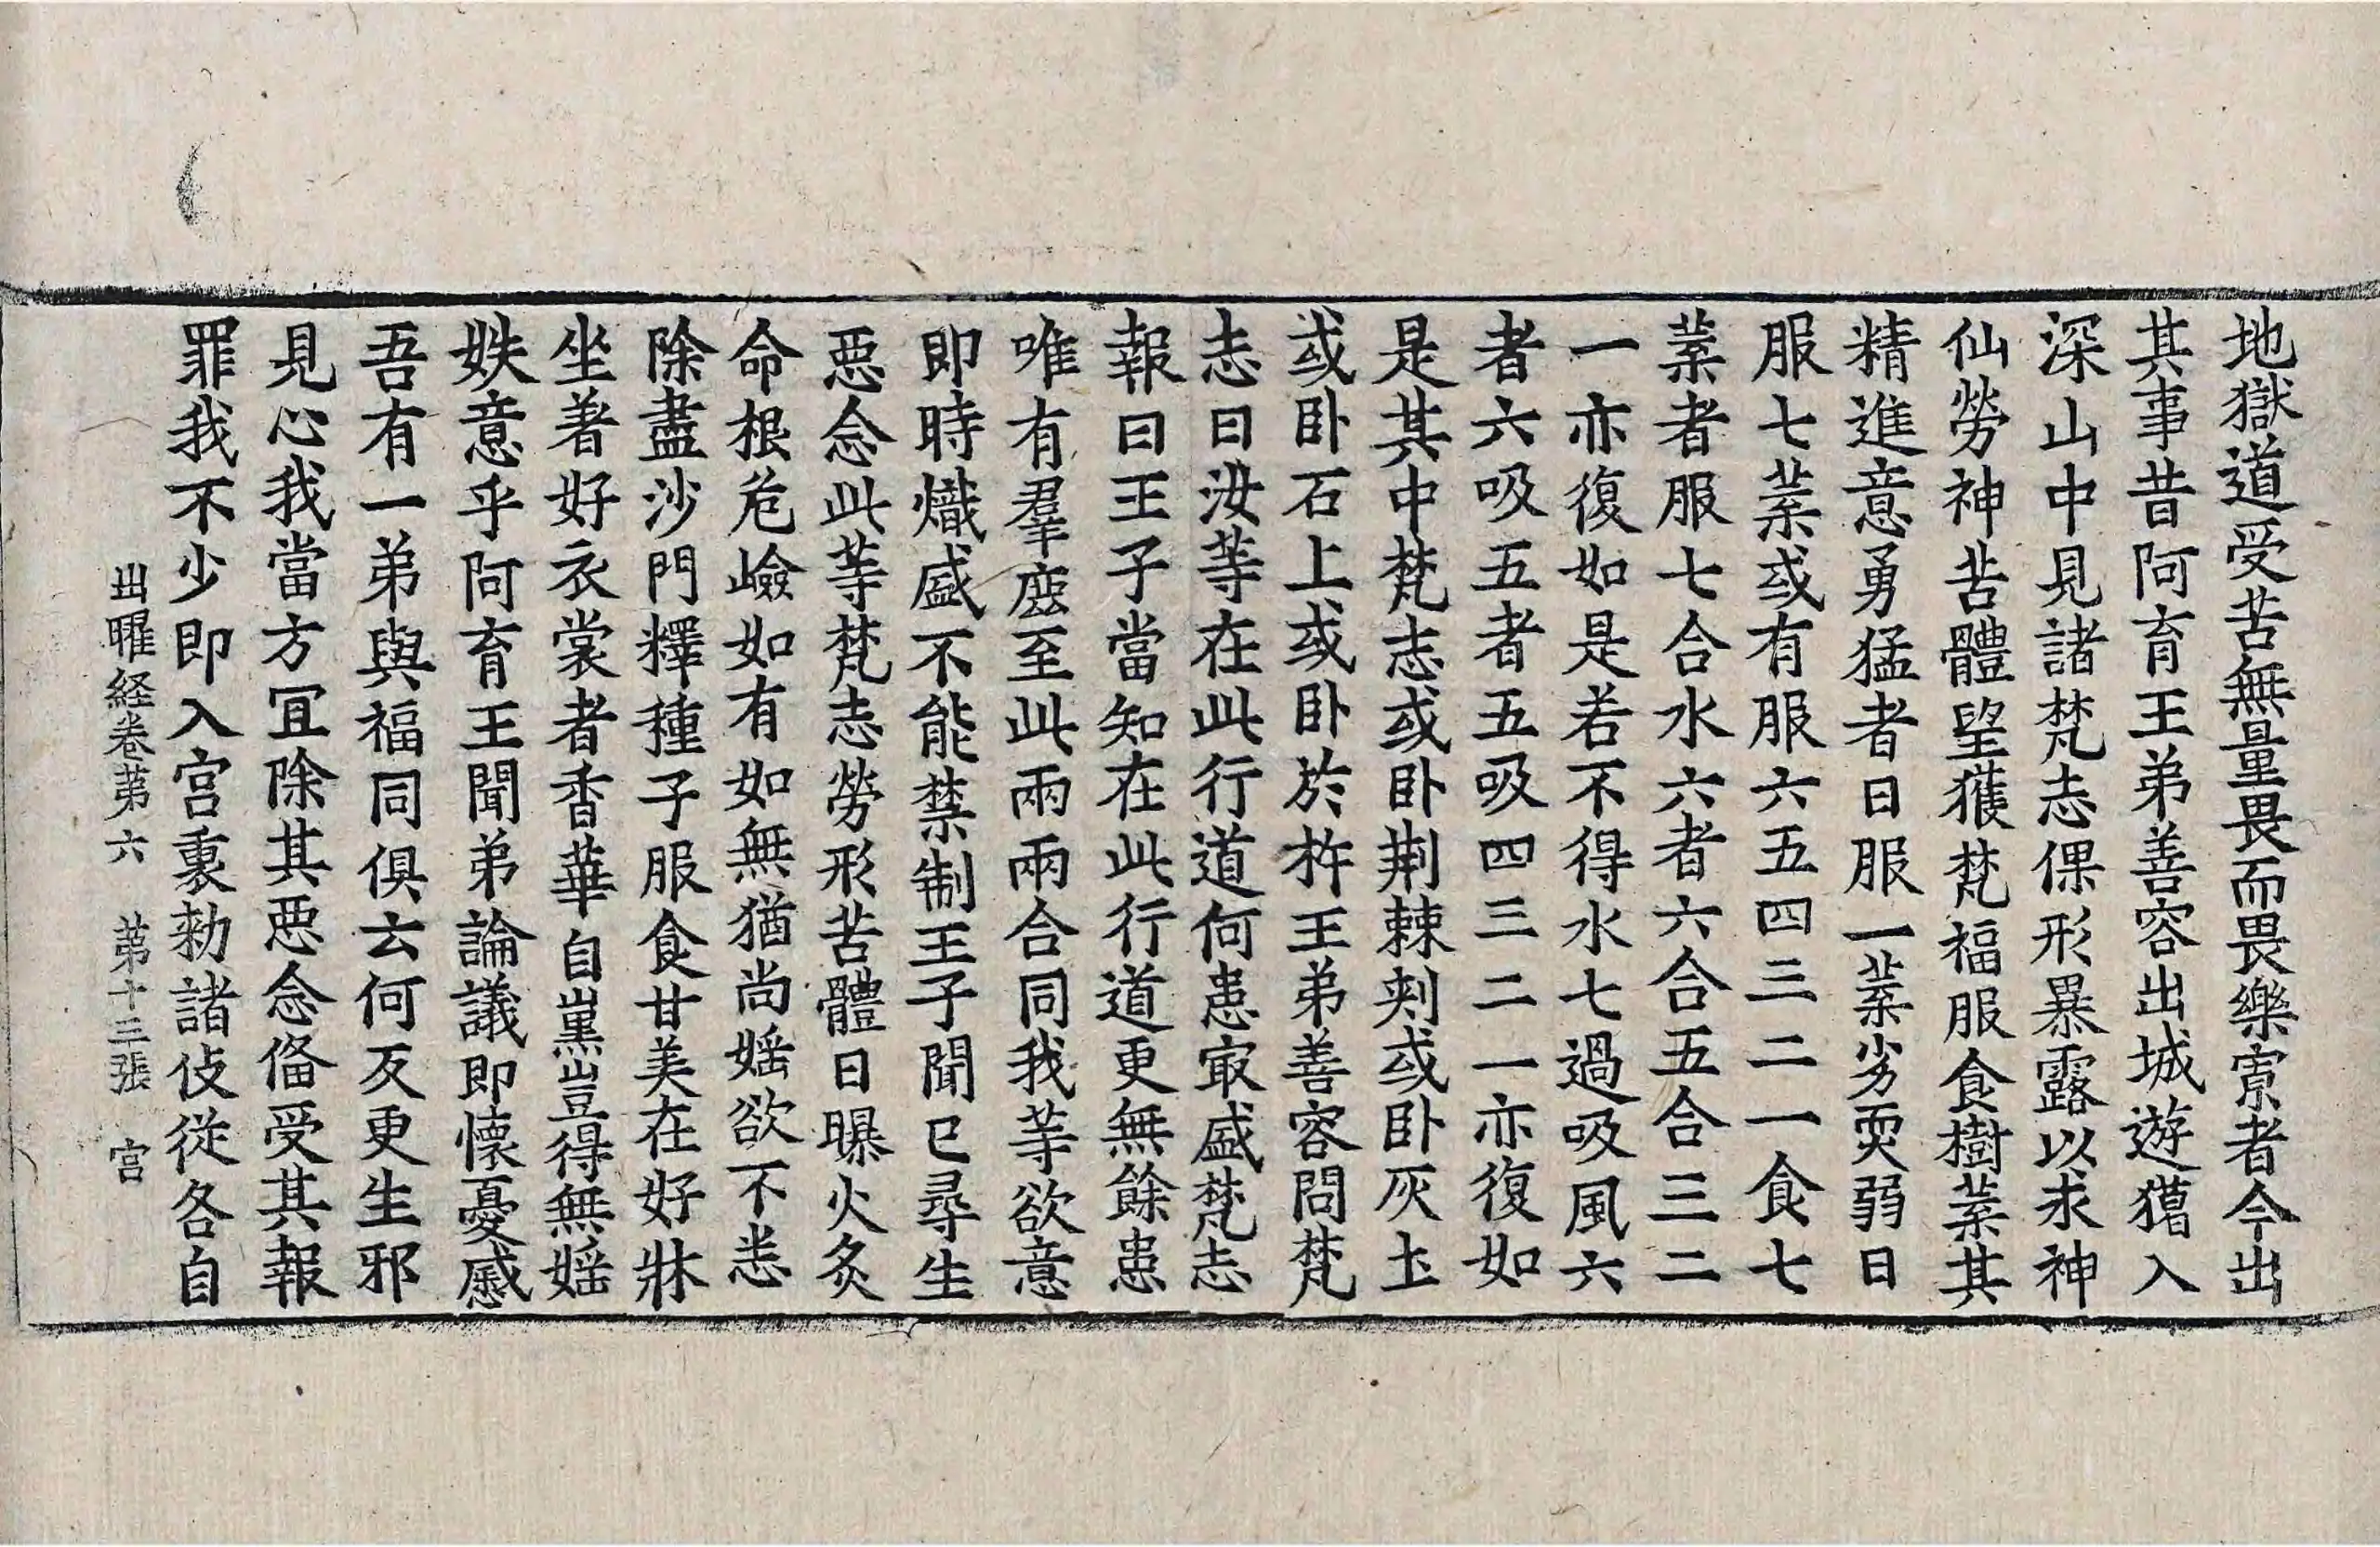 地獄道受苦無量畏而畏樂賔者今出
其事昔阿育王弟善容出城遊獵入
深山中見諸梵志倮形暴露以求神
仙勞神苦體望獲梵福服食樹葉其
精進意勇猛者日服一葉劣耎弱日
服七葉或有服六五四三二一食七
葉者服七合水六者六合五合三二
一亦復如是若不得水七過吸風六
者六吸五者五吸四三二一亦復如
是其中梵志或卧荆棘刾或卧灰圡
或卧石上或卧於杵王弟善容問梵
志曰汝等在此行道何患㝡盛梵志
報曰王子當知在此行道更無餘患
唯有羣鹿至此兩兩合同我等欲意
即時熾盛不能禁制王子聞已尋生
惡念此等梵志勞形苦體日曝火炙
命根危嶮如有如無猶尚婬欲不恙
除盡沙門釋種子服食甘美在好牀
坐著好衣裳者香華自熏豈得無婬
妷意乎阿育王聞弟論議即懷憂慼
吾有一弟與福同俱云何反更生邪
見心我當方冝除其惡念俻受其報
罪我不少即入宫裏勑諸伎從各自
出曜経卷苐六　苐十三張　宫